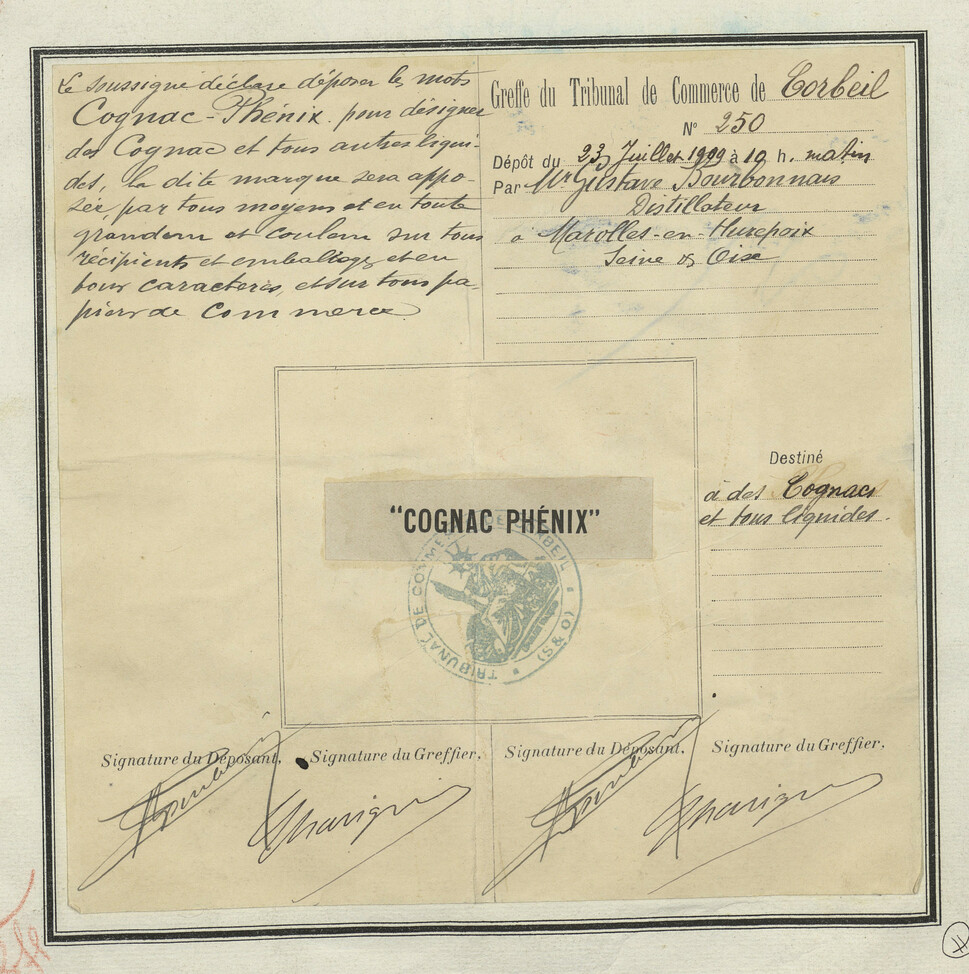 Le soussigné déclare déposer les mots
Cognac-Phénix pour désigner
des Cognac et tous autres liqui-
des, la dite marque sera appo-
sée, par tous moyens et en toute
grandeur et couleur sur tous
récipients et emballages et en
tous caractères, et sur tous pa-
piers de Commerce
Greffe du Tribunal de Commerce de Corbeil
N° 250
Dépôt du 23 Juillet à 10 h. matin
Par Mr Gustave Bourbonnais
Distillateur
à Marolles-en-Hurepoix
Seine & Oise
Destiné
à des Cognacs
et tous liquides.
"COGNAC PHÉNIX"
TRIBUNAL DE COMMERCE DE CORBEIL (O&S)
Signature du Déposant, Signature du Greffier,
Signature du Déposant, Signature du Greffier,